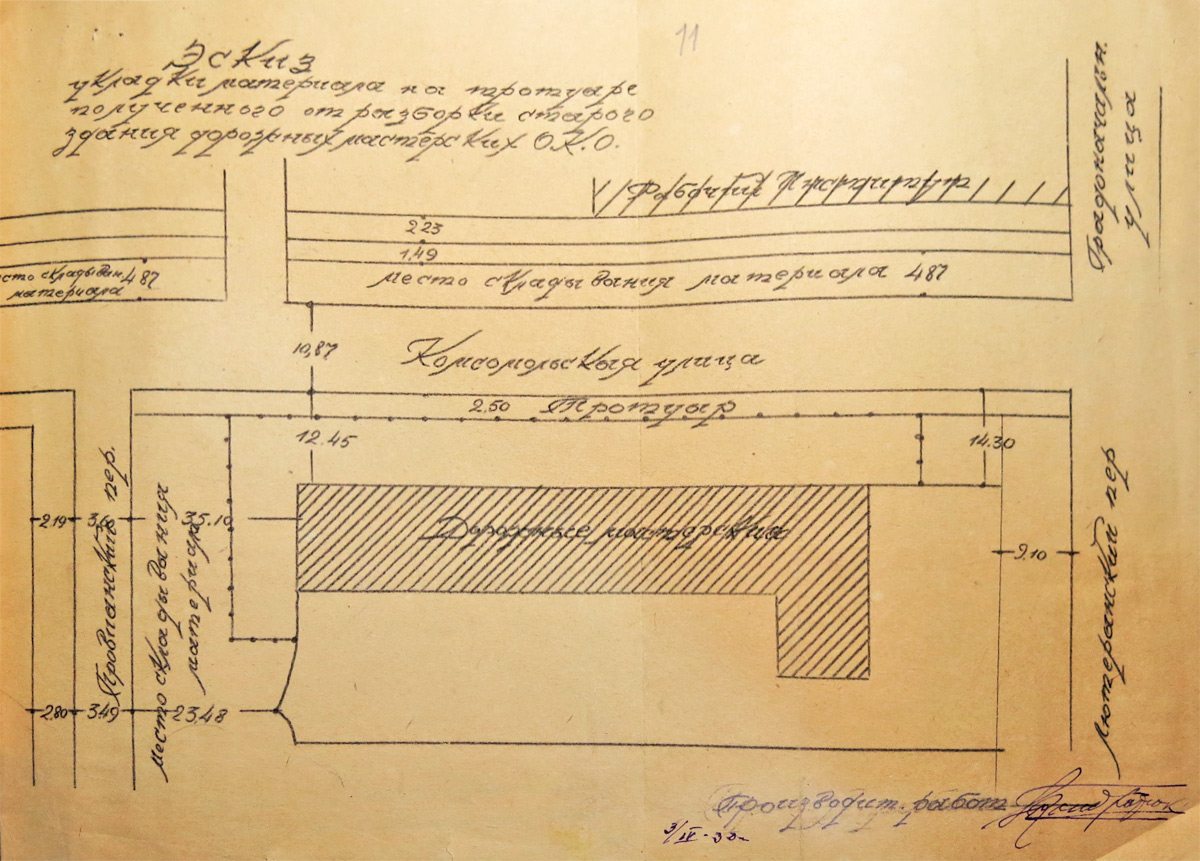 11
Эскиз
укладки материала на тротуаре
полученного от разборки старого
здания дорожных мастерских О.К.О.
Градоначальн.
улица
2.23
1.49
место складывания материала 4.87
материала
4.87
10.87
Комсомольская улица
2.50 Тротуар
12.45
14.30
2.19
3.6
35.10
Дорожные мастерские
9.10
Провиантский пер.
место складывания
материала
Лютеранский пер
2.80
3.49
23.48
Производит. работ
3/IV-32